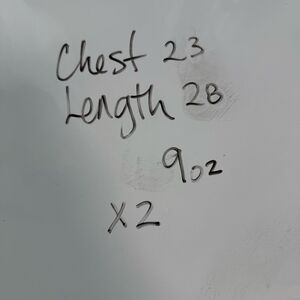 Chest 23
Length 28
9oz
x2